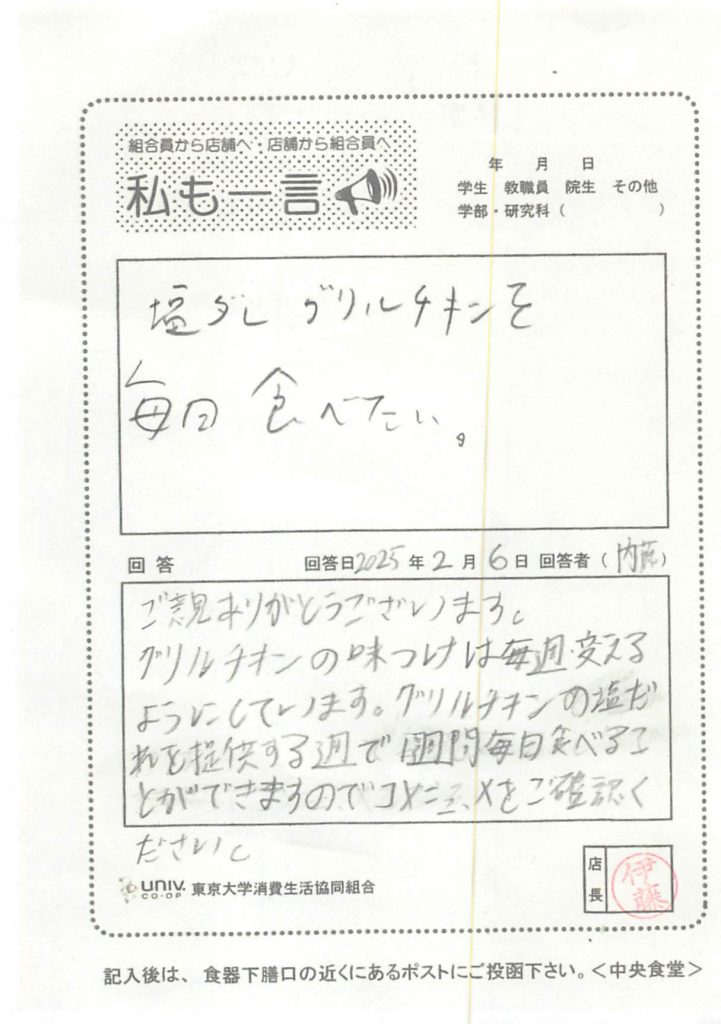 組合員から店舗へ・店舗から組合員へ
私も一言
年 月 日
学生 教職員 院生 その他
学部・研究科（ ）
塩ダレ グリルチキンを
毎日 食べたい。
回答 回答日2025年2月6日 回答者（内藤）
ご意見ありがとうございます。
グリルチキンの味つけは毎週変える
ようにしています。グリルチキンの塩だ
れを提供する週で1週間毎日食べるこ
とができますのでコメニューをご確認く
ださい。
UNIV. CO-OP 東京大学消費生活協同組合
店長 伊藤
記入後は、食器下膳口の近くにあるポストにご投函下さい。＜中央食堂＞